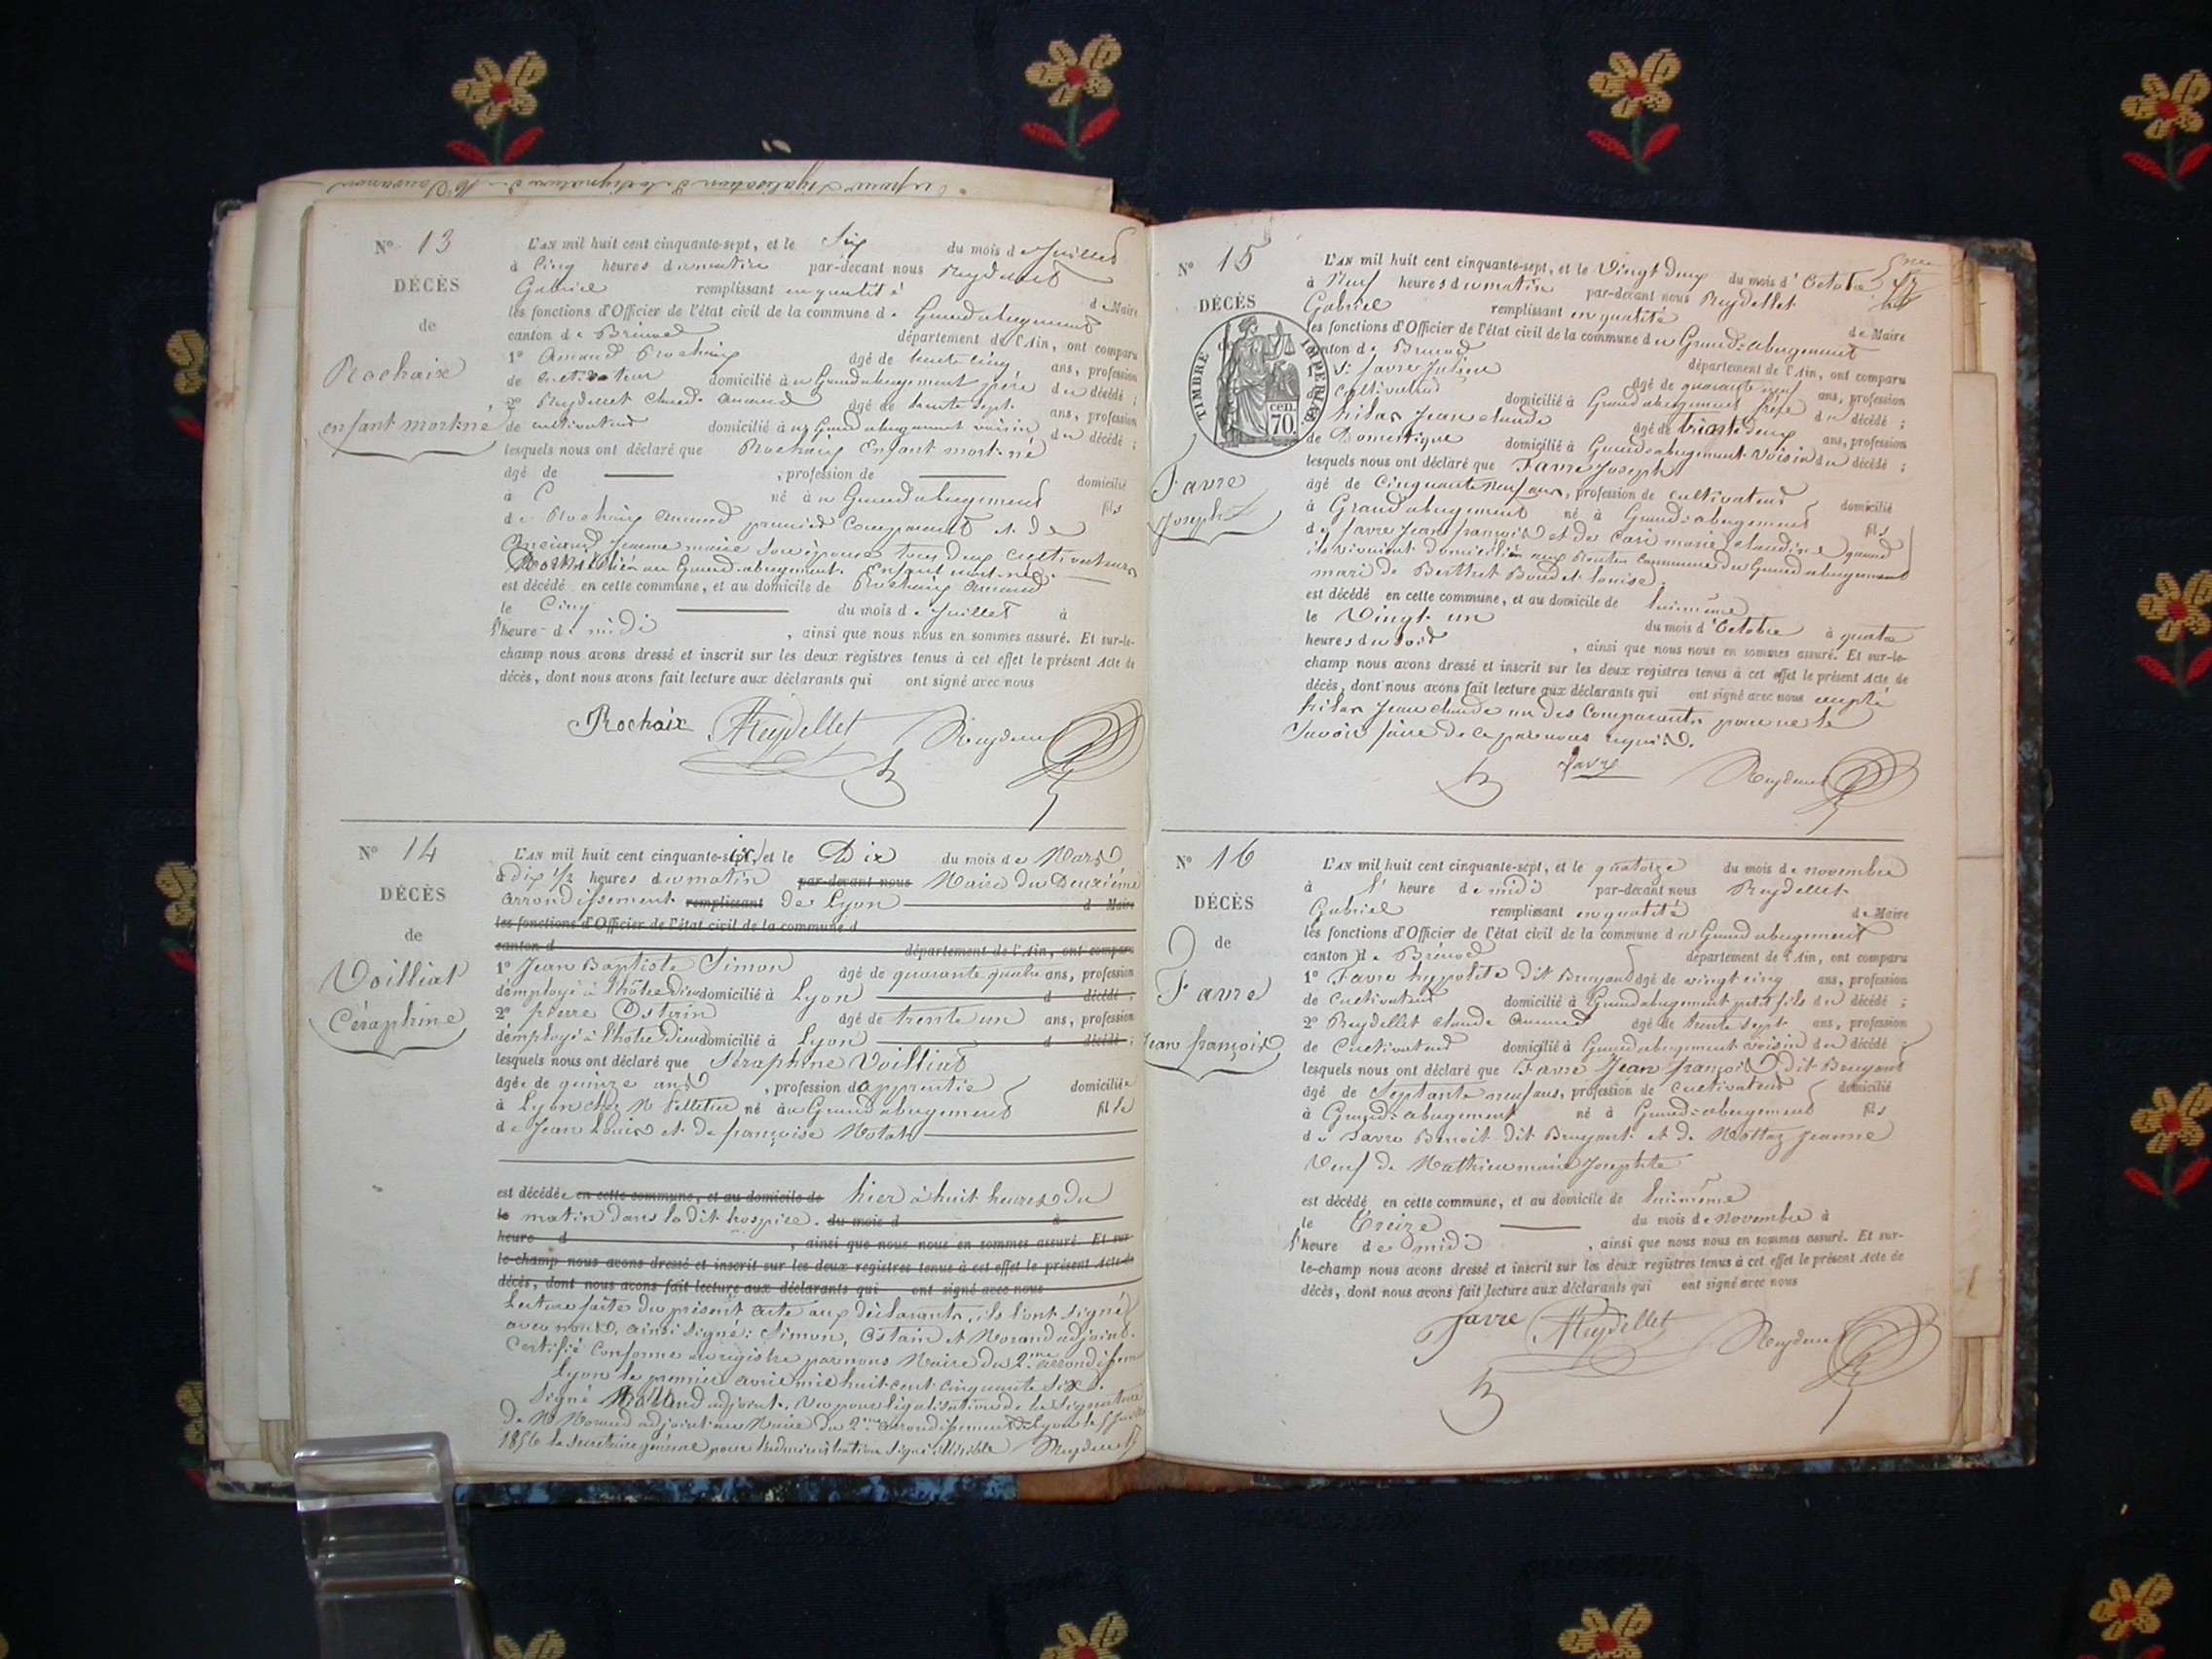 N° 13
DÉCÈS
de
Rochaix
enfant mort-né
L'AN mil huit cent cinquante-sept, et le Six du mois de Juillet
à Cinq heures du matin par-devant nous Reydellet
Gabriel remplissant en qualité de Maire
les fonctions d'Officier de l'état civil de la commune de Grand abergement
canton de Brénod département de l'Ain, ont comparu
1° Amand Rochaix âgé de trente cinq ans, profession
de cultivateur domicilié à Grand abergement père du décédé ;
2° Reydellet Claude Amand âgé de trente sept ans, profession
de cultivateur domicilié au Grand abergement voisin du décédé ;
lesquels nous ont déclaré que Rochaix Enfant mort-né
âgé de , profession de domicilié
à né au Grand abergement fils
de Rochaix Amand premier Comparant et de
Jeanne marie son épouse tous deux cultivateurs
au Grand-abergement. Enfant mort-né.
est décédé en cette commune, et au domicile de Rochaix Amand
le Cinq du mois de Juillet à
l'heure de midi , ainsi que nous nous en sommes assuré. Et sur-le-
champ nous avons dressé et inscrit sur les deux registres tenus à cet effet le présent Acte de
décès, dont nous avons fait lecture aux déclarants qui ont signé avec nous
Rochaix Reydellet Reydellet
N° 14
DÉCÈS
de
Voilliat
Céraphine
L'AN mil huit cent cinquante-six, et le Dix du mois de Mars
à dix 1/2 heures du matin par-devant nous Maire du Deuxième
arrondissement remplissant de Lyon d Maire
les fonctions d'Officier de l'état civil de la commune d
canton d département de l'Ain, ont comparu
1° Jean Baptiste Simon âgé de quarante quatre ans, profession
d'employé à l'hôtel Dieu domicilié à Lyon d décédé ;
2° pierre Ostain âgé de trente un ans, profession
d'employé à l'hôtel Dieu domicilié à Lyon d décédé ;
lesquels nous ont déclaré que Séraphine Voilliat
âgée de quinze ans , profession d'apprentie domiciliée
à Lyon chez M Pelletier né au Grand abergement fille
de Jean Louis et de françoise
est décédée en cette commune, et au domicile de hier à huit heures du
le matin dans le dit hospice. du mois d à
heure d , ainsi que nous nous en sommes assuré. Et sur-
le-champ nous avons dressé et inscrit sur les deux registres tenus à cet effet le présent Acte de
décès, dont nous avons fait lecture aux déclarants qui ont signé avec nous
Lecture faite du présent acte aux déclarants, ils l'ont signé
avec nous, ainsi signé : Simon, Ostain et Morand adjoint.
Certifié Conforme au registre par nous Maire du 2.me arrondissem
Lyon le premier avril mil huit cent cinquante six.
Signé Morand adjoint. Vu pour légalisation de la Signature
de M Morand adjoint au Maire du 2.me arrondissement de Lyon le
1856 le secrétaire général pour l'administration Signé illisible Reydellet
N° 15
DÉCÈS
de
TIMBRE IMPÉRIAL
70 cen.
Favre
Joseph
L'AN mil huit cent cinquante-sept, et le Vingt deux du mois d'Octobre
à Neuf heures du matin par-devant nous Reydellet
Gabriel remplissant en qualité de Maire
les fonctions d'Officier de l'état civil de la commune du Grand-abergement
canton de Brénod département de l'Ain, ont comparu
1° favre Julien âgé de quarante neuf ans, profession
de Cultivateur domicilié à Grand abergement frère du décédé ;
Jean claude âgé de trente deux ans, profession
de Domestique domicilié à Grand-abergement voisin du décédé ;
lesquels nous ont déclaré que Favre Joseph
âgé de Cinquante neuf ans, profession de cultivateur domicilié
à Grand abergement né à Grand-abergement fils
de favre Jean françois et de marie claudine quand
ils vivaient domiciliés commune du Grand abergement
mari de Berthet Bondet louise.
est décédé en cette commune, et au domicile de lui même
le Vingt un du mois d'Octobre à quatre
heures du soir , ainsi que nous nous en sommes assuré. Et sur-le-
champ nous avons dressé et inscrit sur les deux registres tenus à cet effet le présent Acte de
décès, dont nous avons fait lecture aux déclarants qui ont signé avec nous excepté
Jean claude un des Comparants pour ne le
Savoir faire de ce par nous requis.
favre Reydellet
N° 16
DÉCÈS
de
Favre
Jean françois
L'AN mil huit cent cinquante-sept, et le quatorze du mois de novembre
à l'heure de midi par-devant nous Reydellet
Gabriel remplissant en qualité de Maire
les fonctions d'Officier de l'état civil de la commune du Grand abergement
canton de Brénod département de l'Ain, ont comparu
1° Favre hypolite dit Bruyand âgé de vingt cinq ans, profession
de Cultivateur domicilié à Grand abergement petit fils du décédé ;
2° Reydellet claude Amand âgé de trente sept ans, profession
de Cultivateur domicilié à Grand abergement voisin du décédé ;
lesquels nous ont déclaré que Favre Jean françois dit Bruyand
âgé de Septante neuf ans, profession de Cultivateur domicilié
à Grand-abergement né à Grand-abergement fils
de Favre Benoit dit Bruyant et de Mottaz Jeanne
Veuf de Mathieu marie Josephte
est décédé en cette commune, et au domicile de lui même
le Treize du mois de Novembre à
l'heure de midi , ainsi que nous nous en sommes assuré. Et sur-
le-champ nous avons dressé et inscrit sur les deux registres tenus à cet effet le présent Acte de
décès, dont nous avons fait lecture aux déclarants qui ont signé avec nous
Favre Reydellet Reydellet